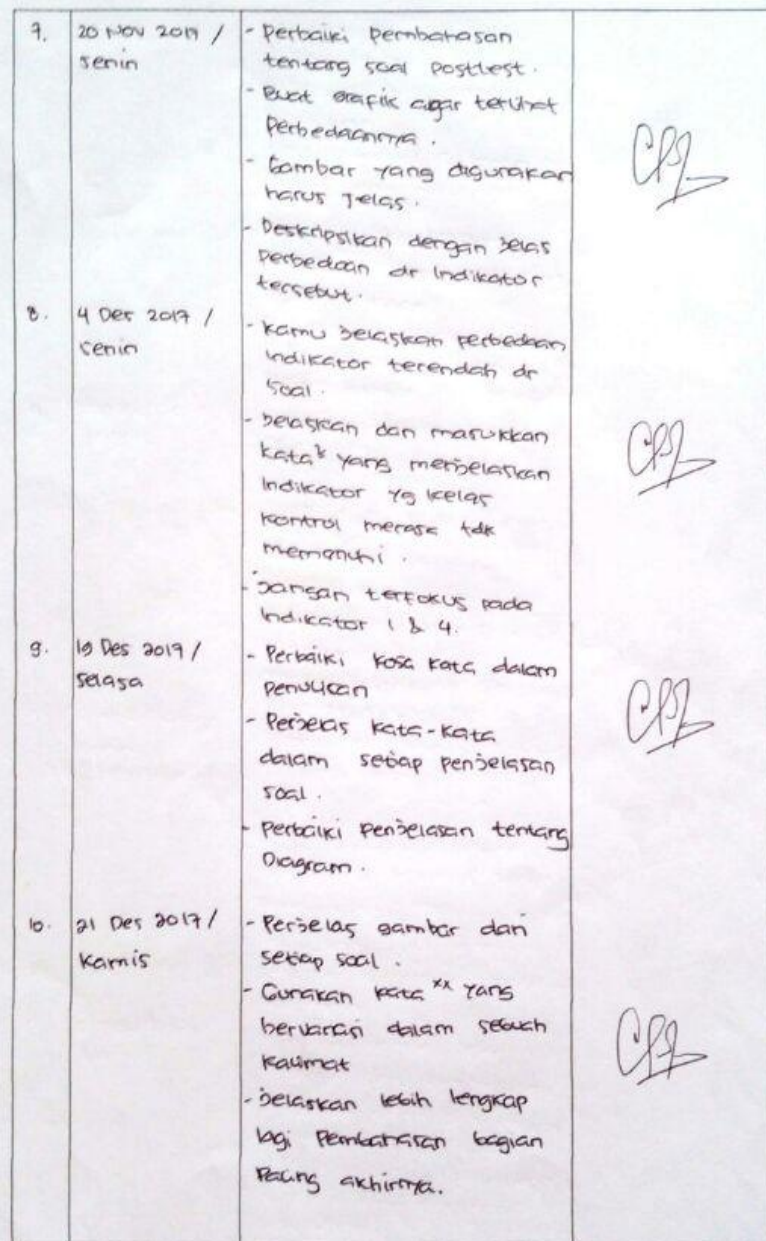 7. 20 Nov 2017 / - Perbaiki Pembahasan
senin tentang soal posttest.
- Buat Grafik agar terlihat
Perbedaannya.
- Gambar yang digunakan
harus Jelas.
- Deskripsikan dengan Jelas
perbedaan dr Indikator
tersebut.
8. 4 Des 2017 / - Kamu Jelaskan perbedaan
senin Indikator terendah dr
Soal.
- Jelaskan dan masukkan
kata² yang menjelaskan
Indikator yg kelas
kontrol merasa tdk
memenuhi.
- Jangan terfokus pada
Indikator 1 & 4.
9. 19 Des 2017 / - Perbaiki kosa kata dalam
selasa penulisan
- Perjelas kata-kata
dalam setiap penjelasan
soal.
- Perbaiki penjelasan tentang
Diagram.
10. 21 Des 2017 / - Perjelas gambar dari
Kamis setiap soal.
- Gunakan kata ˣˣ yang
bervariasi dalam sebuah
kalimat
- Jelaskan lebih lengkap
lagi Pembahasan bagian
Paling akhirnya.